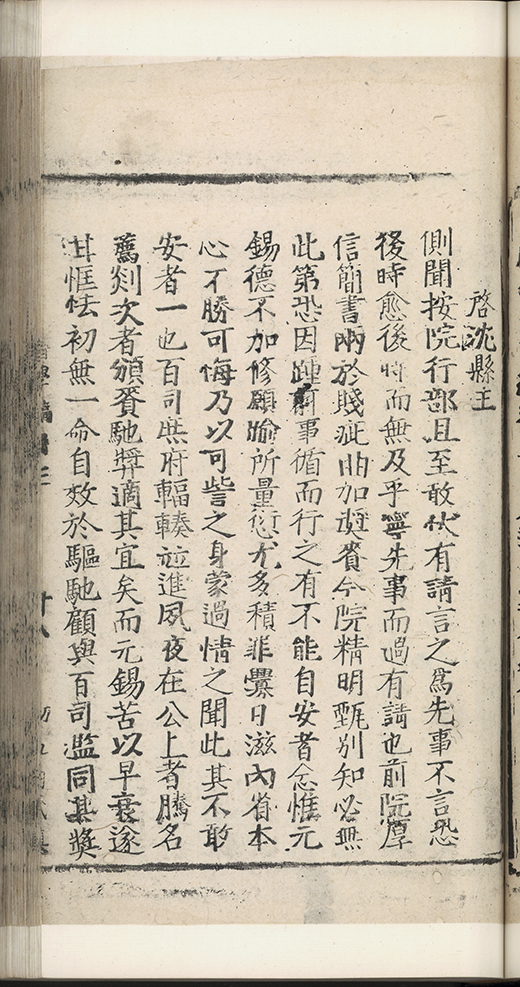 啓沈縣主
側聞按院行部且至敢伏有請言之爲先事不言恐
後時愈後時而無及乎寧先事而過有請也前院厚
信簡書兩於賤疵曲加奬賚今院精明甄别知必無
此第恐因踵前事循而行之有不能自安者念惟元
錫德不加修願踰所量愆尤多積菲釁日滋內省本
心不勝可悔乃以可訾之身蒙過情之聞此其不敢
安者一也百司庶府輻輳並進夙夜在公上者騰名
薦剡次者頒賚馳奬適其宜矣而元錫苦以早衰遂
甘恇怯初無一命自效於驅馳顧與百司濫同其獎